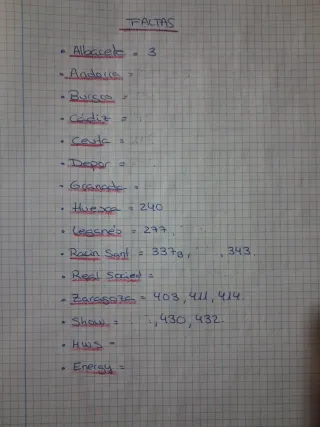 FALTAS
• Albacete = 3
• Andorra =
• Burgos =
• Cádiz =
• Ceuta =
• Depor =
• Granada =
• Huesca = 240
• Leganés = 277
• Racin Sant = 337g, , 343
• Real Socied =
• Zaragoza = 403, 411, 414
• Show = , 430, 432
• HWS =
• Energy =